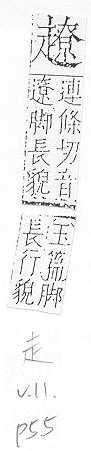 連條切音
遼脚長貌
玉篇脚
長行貌
走
v.11.
p55